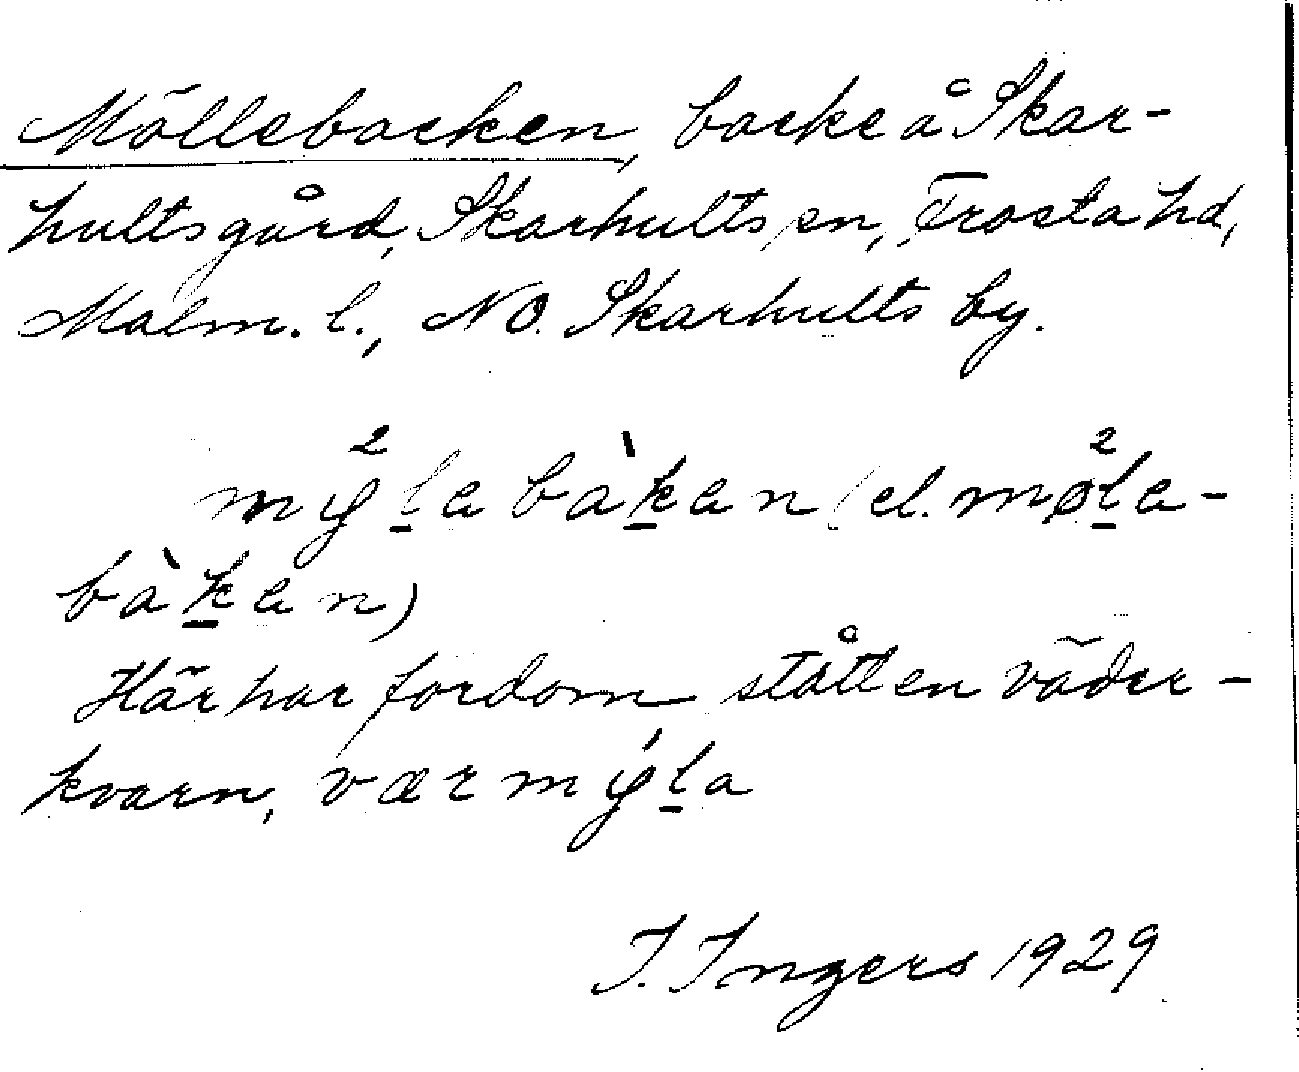 Möllebacken, backe å Skar-
hultsgård, Skarhults sn, Frosta hd,
Malm. l., NO. Skarhults by.
my²labàkan (el. mø²la-
bàkan)
Här har fordom stått en väder-
kvarn, værmýla
I. Ingers 1929